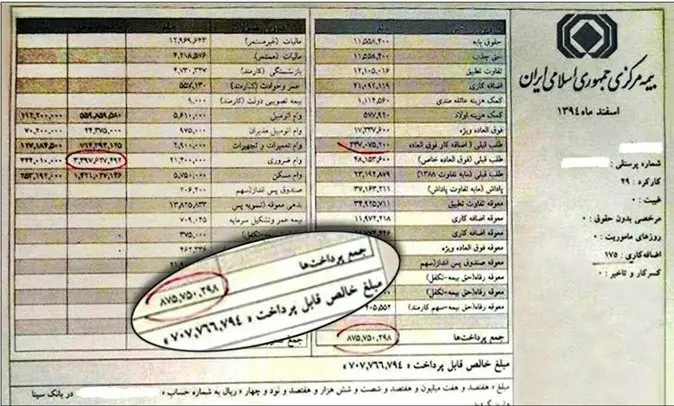 بیمه مرکزی جمهوری اسلامی ایران
اسفند ماه ۱۳۹۴
شماره پرسنلی :
کارکرد : ۲۹
غیبت : ۰
مرخصی بدون حقوق : ۰
روزهای ماموریت : ۰
اضافه کاری : ۱۷۵
کسر کار و تاخیر : ۰
حقوق پایه ۱۱,۵۵۸,۴۰۰
حق جذب ۱۱,۵۵۸,۴۰۰
تفاوت تطبیق ۱۲,۱۰۵,۰۱۶
اضافه کاری ۲۱,۰۹۲,۱۱۹
کمک هزینه عائله مندی ۱,۱۱۴,۵۶۰
کمک هزینه اولاد ۵۷۷,۹۲۰
فوق العاده ویژه ۱۷,۳۳۷,۶۰۰
طلب قبلی ( اضافه کار فوق العاده ۳۳۷,۰۷۵,۲۰۰
طلب قبلی (فوق العاده خاص) ۴۸,۱۵۳,۶۰۰
طلب قبلی (مابه تفاوت ۱۳۸۸) ۲۳,۱۹۴,۸۷۹
پاداش (مابه تفاوت پاداش) ۳۷,۱۶۳,۲۱۱
معوقه تفاوت تطبیق ۳۴,۹۲۵,۷۱۱
معوقه اضافه کاری ۱۱,۹۷۲,۲۱۸
معوقه اضافه کاری
معوقه فوق العاده ویژه
معوقه صندوق پس انداز(سهم
معوقه رفاه(حق بیمه-تکفل)
معوقه رفاه(حق بیمه-تکفل)
معوقه رفاه(حق بیمه-سهم کارمند)
جمع پرداخت‌ها ۸۷۵,۷۵۰,۲۹۸
مالیات (غیرمستمر) ۱۲,۹۶۹,۶۲۳
مالیات (مستمر) ۴,۲۱۸,۵۷۶
بازنشستگی (کارمند) ۴,۷۳۰,۳۳۷
عمر وحوادث (کارمند) ۵۵۷,۱۳۰
بیمه تصویبی دولت (کارمند) ۹,۰۰۰
وام اتومبیل ۵,۶۱۰,۰۰۰ ۵۵۹,۸۵۹,۵۸۰ ۱۹۲,۲۰۰,۰۰۰
وام اتومبیل مدیران ۹۷۵,۰۰۰ ۲۴,۳۷۵,۰۰۰ ۷۰,۲۰۰,۰۰۰
وام تعمیرات و تجهیزات ۲,۹۰۰,۰۰۰
وام ضروری ۲۱,۲۰۰,۰۰۰ ۳,۳۹۷,۶۲۷,۴۹۲
وام مسکن ۵,۷۵۰,۰۰۰ ۱,۴۲۱,۰۲۷,۱۴۶ ۲۵۳,۱۹۲,۰۰۰
صندوق پس انداز(سهم ۲۰۶,۲۰۰
بدهی معوقه (تسویه پس ۱۳,۸۲۵,۸۳۳
بیمه عمر وتشکیل سرمایه ۷۰۹,۰۴۵
جمع پرداخت‌ها
۸۷۵,۷۵۰,۲۹۸
مبلغ خالص قابل پرداخت » ۷۰۷,۷۶۶,۷۹۴ «
مبلغ خالص قابل پرداخت » ۷۰۷,۷۶۶,۷۹۴
مبلغ » هفتصد و هفت میلیون و هفتصد و شصت و شش هزار و هفتصد و نود و چهار » ریال به شماره حساب » در بانک سینا